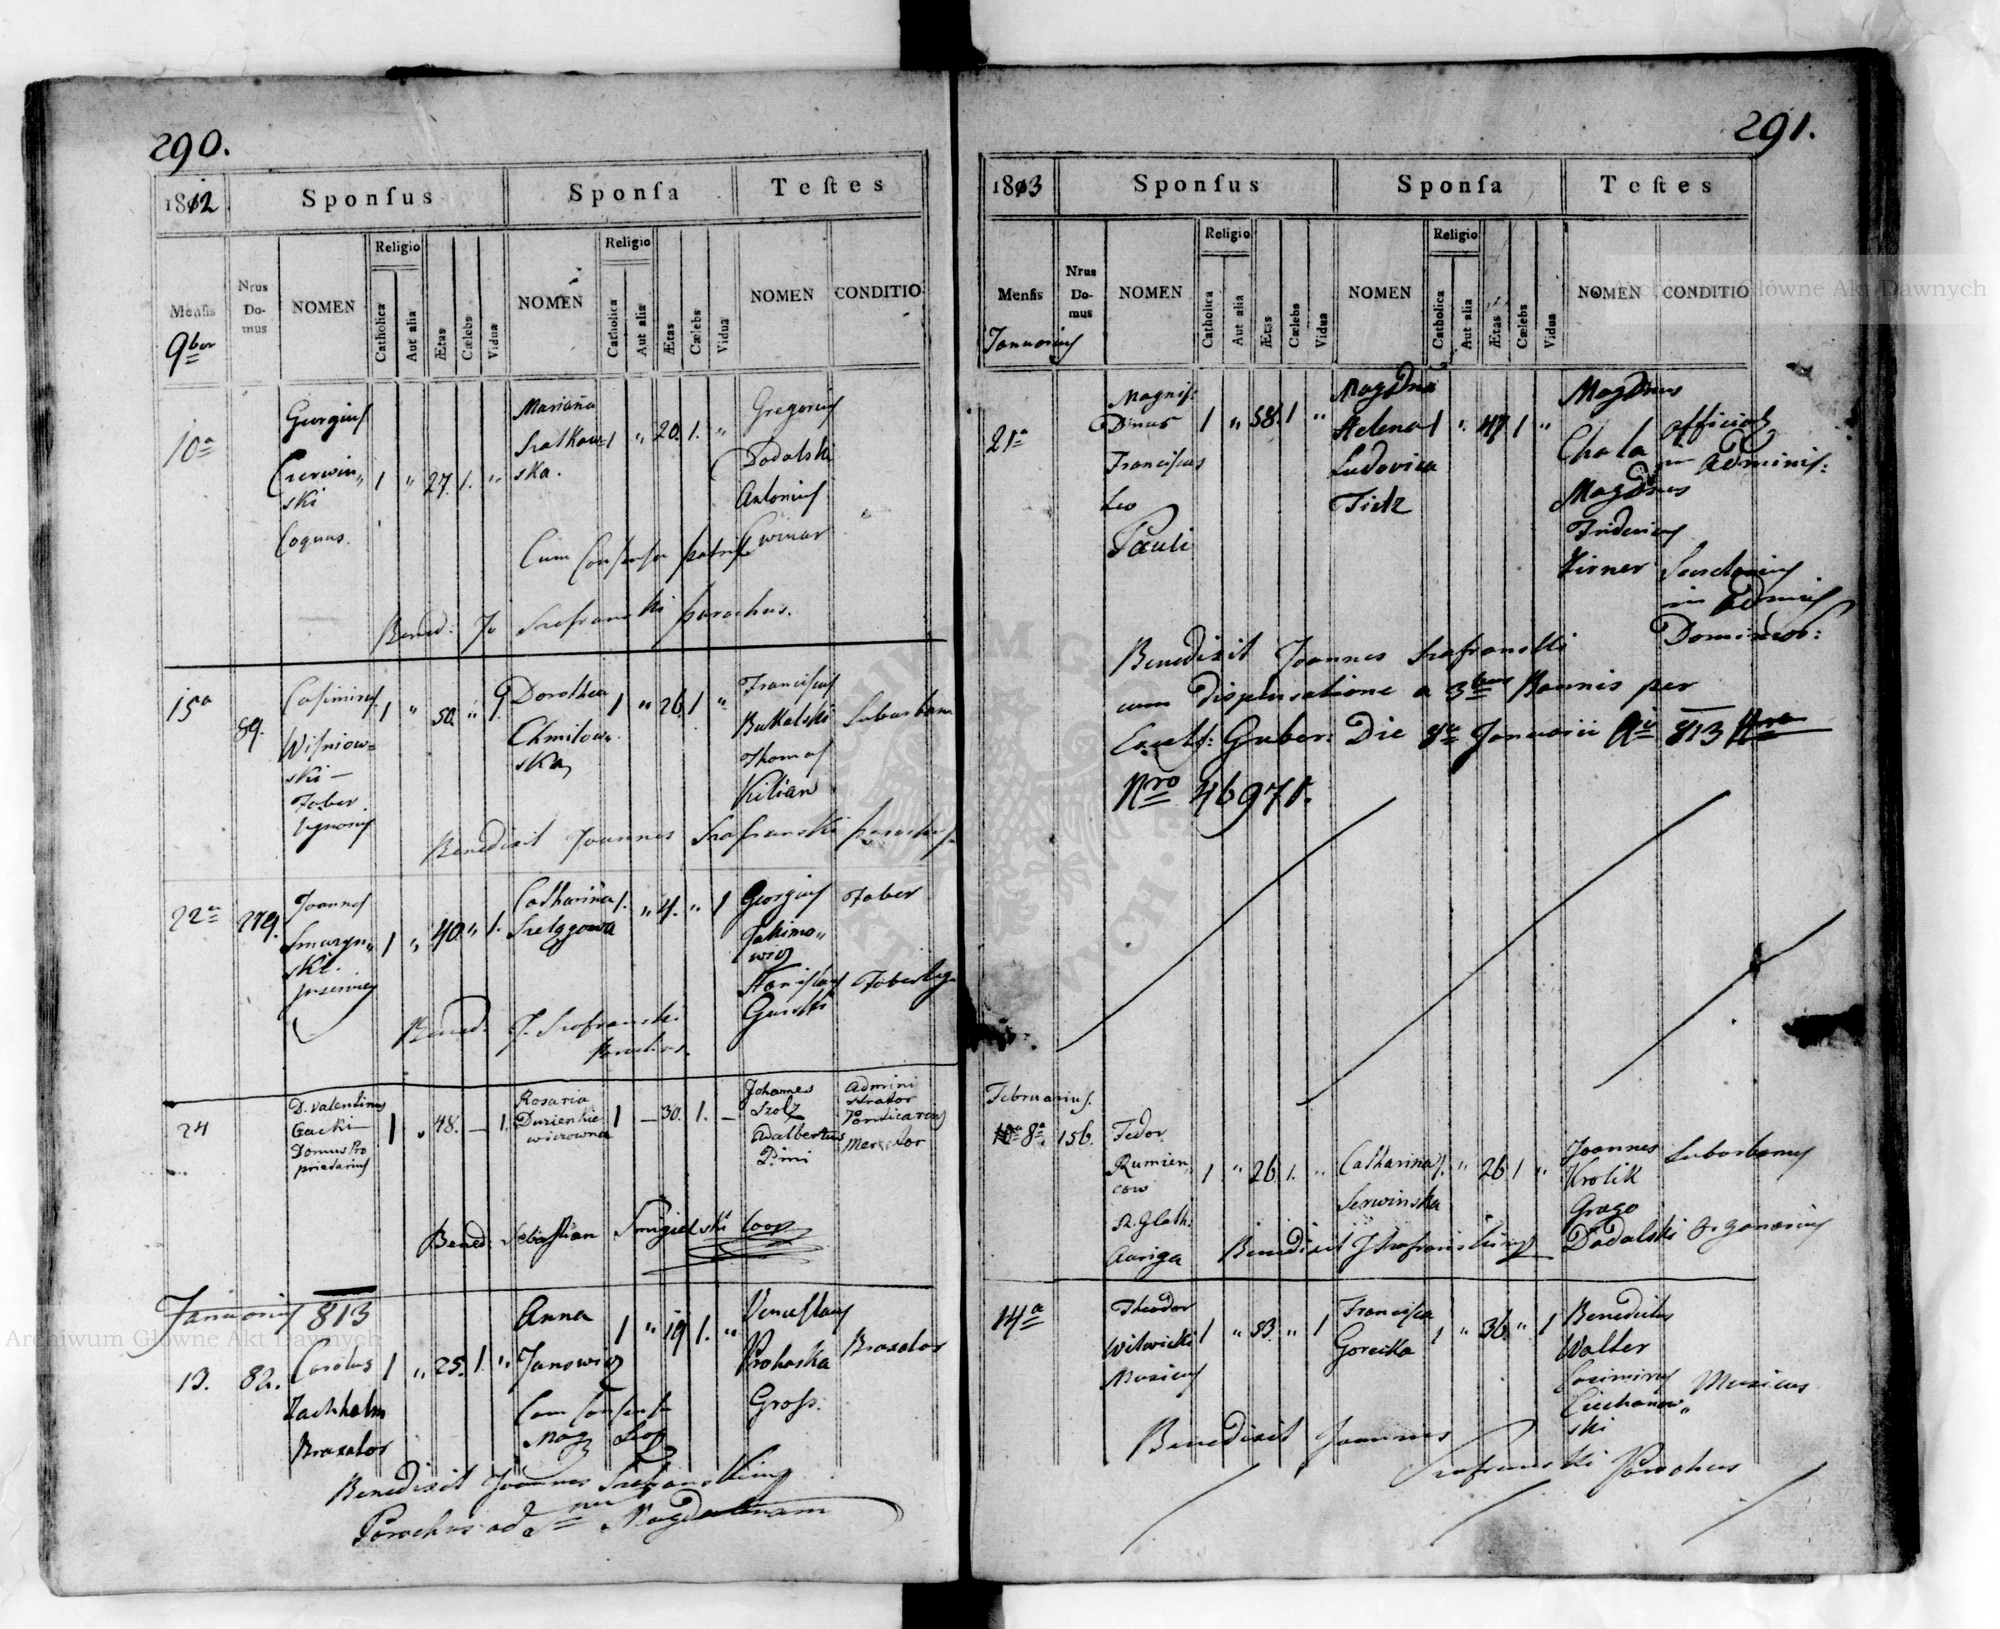 290.
1812.
Sponſus
Sponſa
Teſtes
Menſis
Nrus Do-
mus
NOMEN
Religio
Catholica
Aut alia
Ætas
Cælebs
Vidua
NOMEN
Religio
Catholica
Aut alia
Ætas
Cælebs
Vidua
NOMEN
CONDITIO
9ber
10a
Georgius
Czerwin„
ski
Coquus.
1 „ 27. 1. „
Marianna
Szalkow=
ska.
1 „ 20. 1. „
Gregorius
Dodolski
Antonius
Cum Consensu patris
Bened: Jo Szafranski parochus.
15a
89.
Casimirus
Wisniow=
ski —
Faber
lignarius
1 „ 50. „ 1.
Dorothea
Chmilow„
ska
1 „ 26 1 „
Franciscus
Bukalski
Thomas
Kilian
Suburban
Benedixit Joannes Szafranski parochus
22a
279.
Joannes
Smarzyn„
ski.
1 „ 40. „ 1.
Catharina
1. „ 41. „ 1
Georgius
Jakimo„
wicz
Stanislaus
Gurski
Faber
Faber lig
Bened: J. Szafranski
Parochus.
24
D. Valentinus
Gacki —
Domus Pro
prietarius
1 „ 48. — 1.
Rosaria
Duzienkie
wiczowna
1 — 30. 1. —
Johannes
Szolz
Adalbertus
Pini
Admini
strator
Mercator
Bened: Sebastian Smigielski Coop
Januarius 813
13.
82.
Carolus
Zachhalm
Braxator
1 „ 25. 1. „
Anna
Janowicz
1 „ 19 1. „
Cum Consensu
Mag
Venceslaus
Prohaska
Gross.
Braxator
Benedixit Joannes Szafranski
Parochus ad S Magdalenam
291.
1813
Sponſus
Sponſa
Teſtes
Menſis
Nrus
Do-
mus
NOMEN
Religio
Catholica
Aut alia
Ætas
Cælebs
Vidua
NOMEN
Religio
Catholica
Aut alia
Ætas
Cælebs
Vidua
NOMEN
CONDITIO
Januarius
21a
Magnif:
Dinus
Franciscus
Leo
Pauli
1 „ 58. 1 „
Magdna
Helena
Ludovica
Tietz
1 „ 47 1 „
Magdnus
Chala
Magdnus
Fridericus
Kirner
Official
Adminis:
Dominior:
Benedixit Joannes Szafranski
cum Dispensatione a 3bus Bannis per
Excels: Guber: Die 8va Januarii Ai 813
Nro 46971.
Februarius.
8a
156.
Fedor
Rumien
cow
Auriga
1 „ 26. 1. „
Catharina
Serwinska
1. „ 26 1 „
Joannes
Krolik
Grego
Dadalski
Suburbanus
Organarius
Benedixit J Szafranski
14a
Theodor
Witwicki
Musicus
1 „ 53. „ 1
Francisca
Gorecka
1 „ 36. „ 1
Benedictus
Walter
Casimirus
Ciechanow„
ski
Musicus
Benedixit Joannes
Szafranski Parochus
Archiwum Główne Akt Dawnych
Archiwum Główne Akt Dawnych